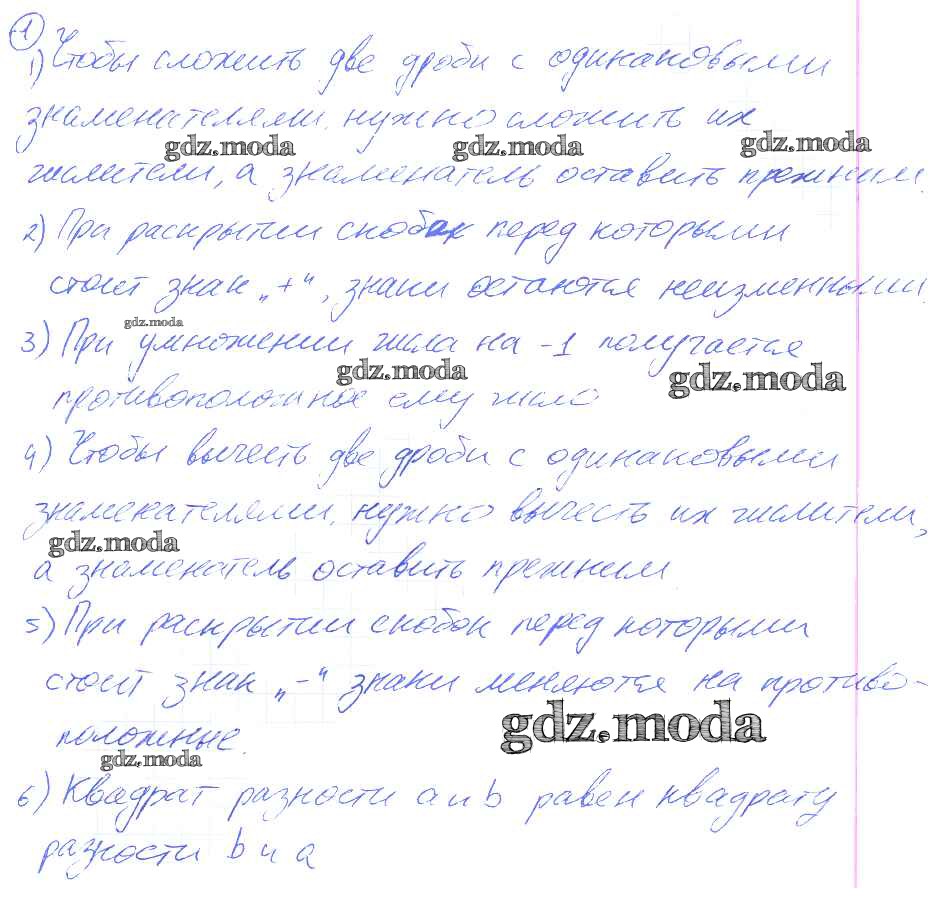 1
1) Чтобы сложить две дроби с одинаковыми
знаменателями, нужно сложить их
gdz.moda gdz.moda gdz.moda
числители, а знаменатель оставить прежним.
2) При раскрытии скобок перед которыми
стоит знак „+“, знаки остаются неизменными.
gdz.moda
3) При умножении числа на -1 получается
gdz.moda gdz.moda
противоположное ему число
4) Чтобы вычесть две дроби с одинаковыми
знаменателями, нужно вычесть их числители,
gdz.moda
а знаменатель оставить прежним.
5) При раскрытии скобок перед которыми
стоит знак „-“ знаки меняются на противо-
gdz.moda
положные.
gdz.moda
6) Квадрат разности a и b равен квадрату
разности b и a